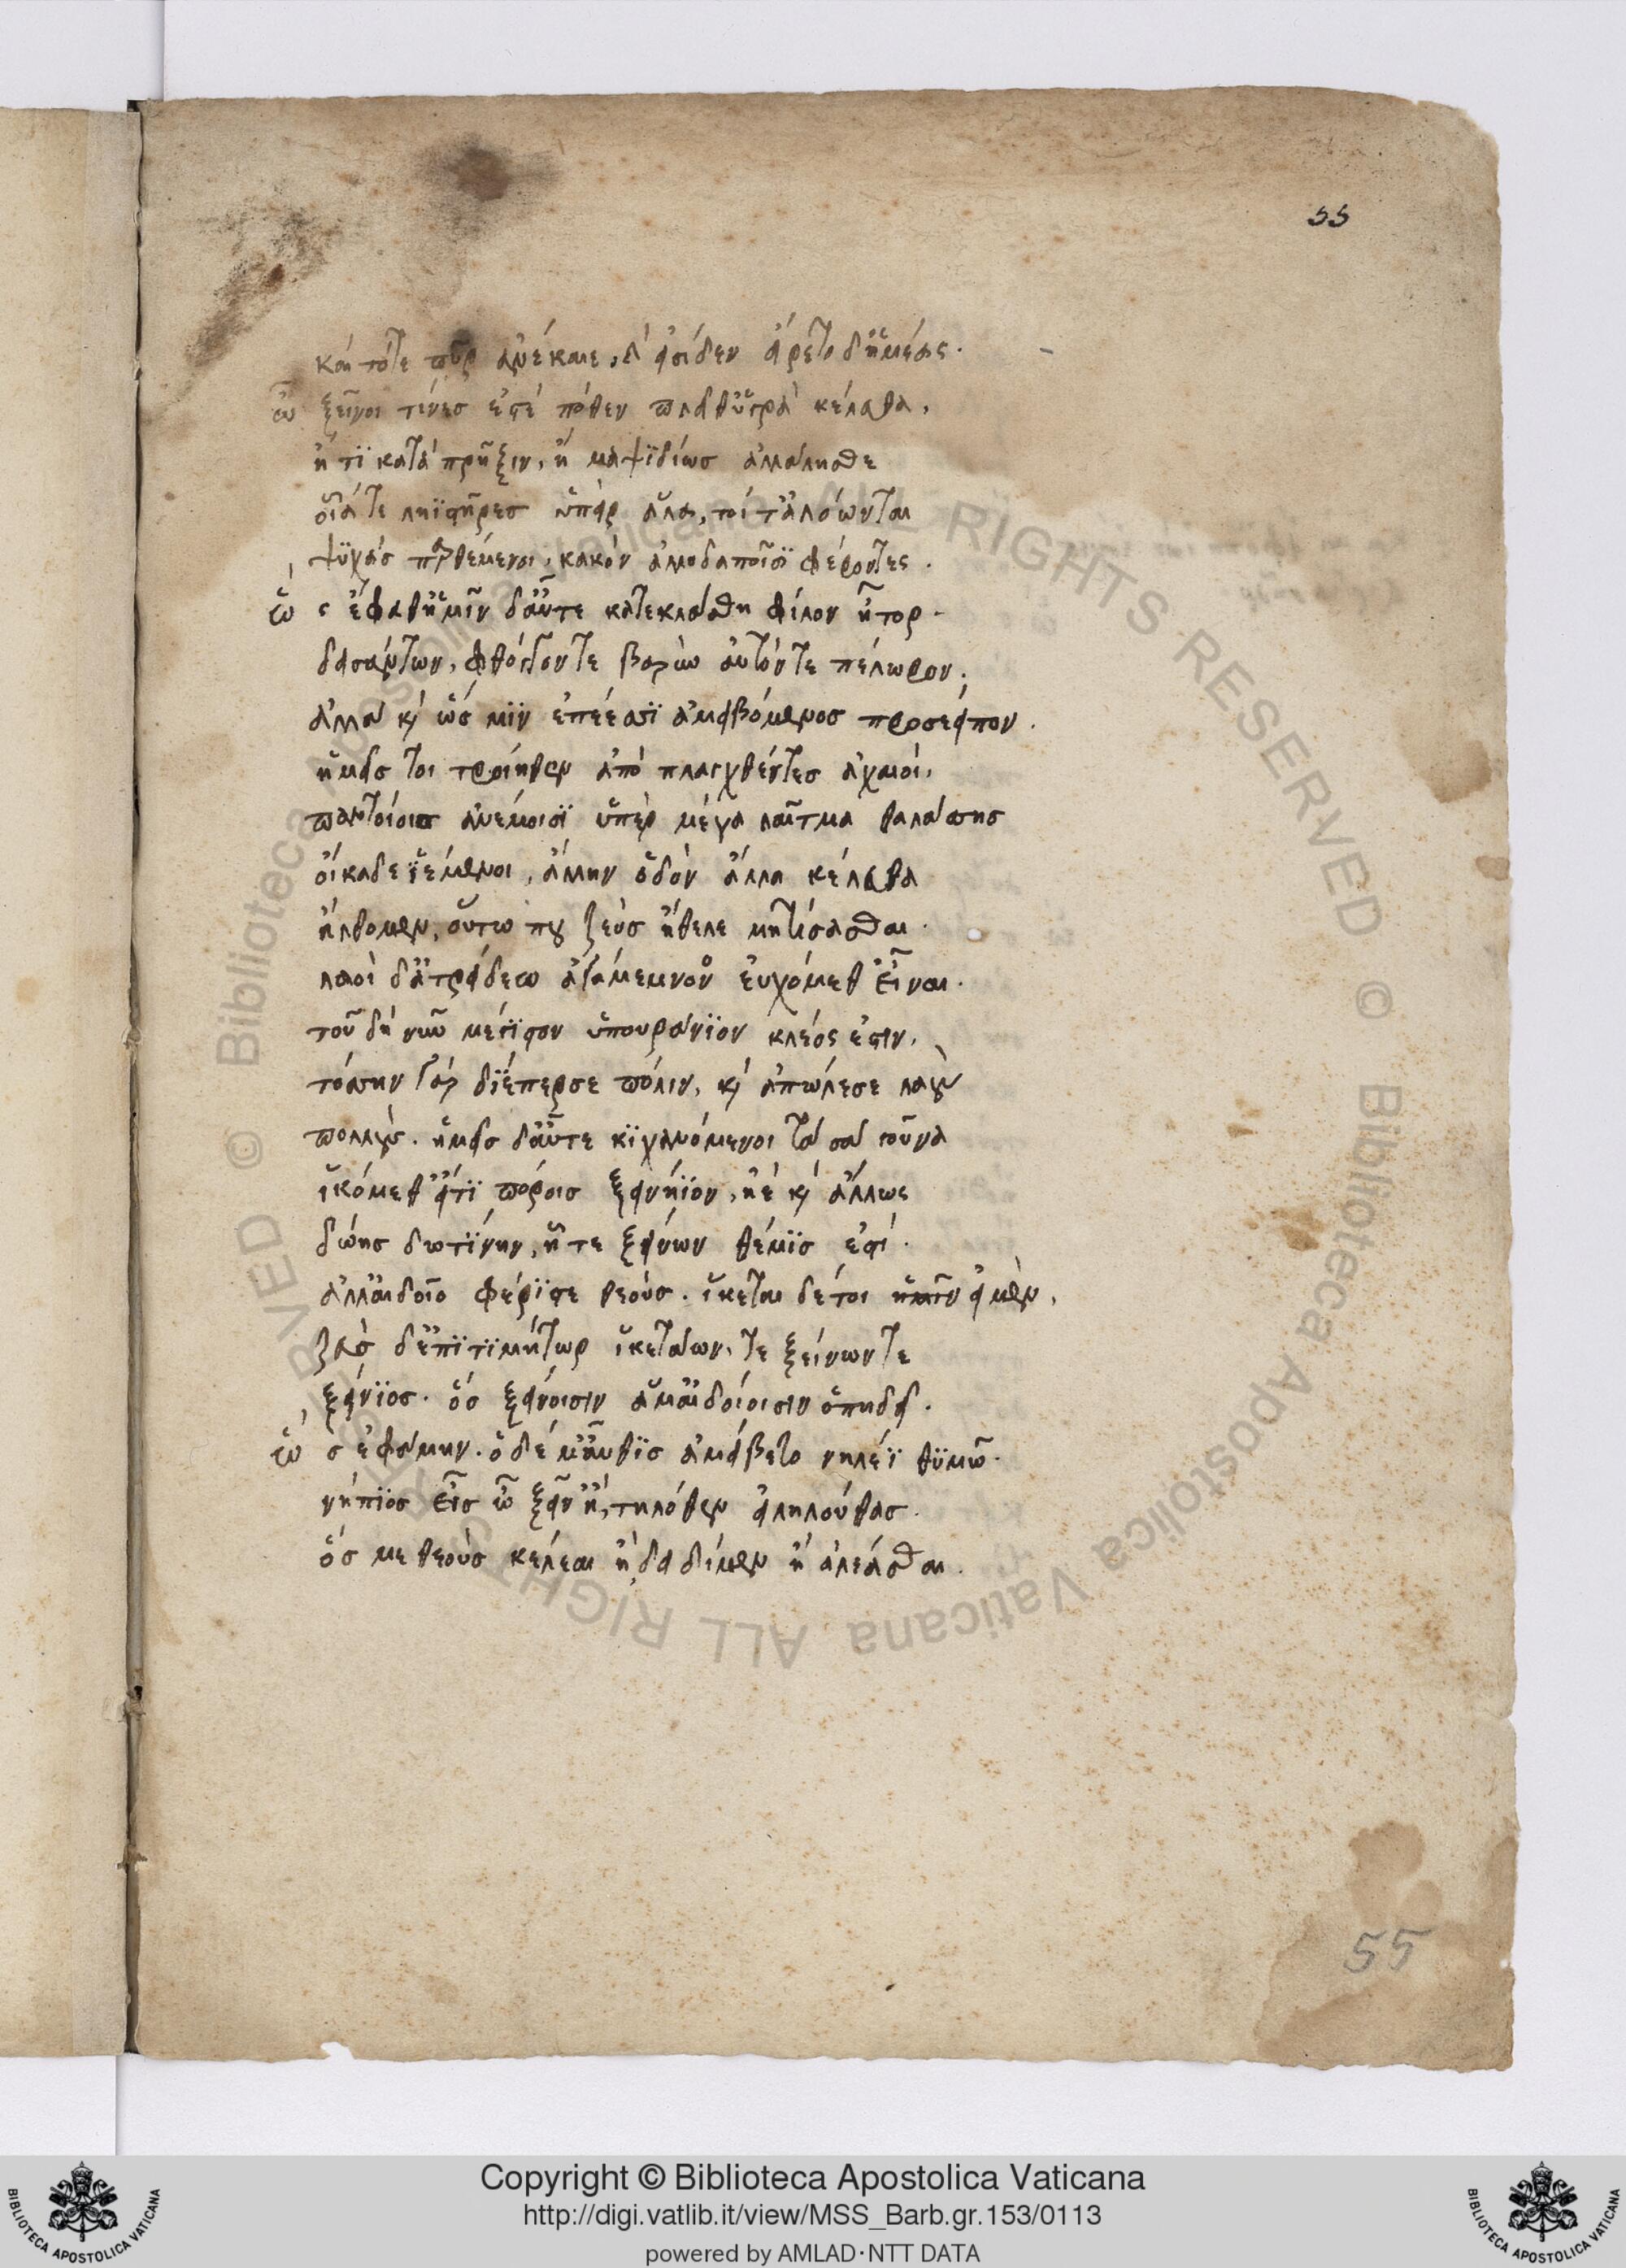 55
καὶ τότε πῦρ ἀνέκαιε, κ' εἴσιδεν εἴρετο δ' ἡμέας.
ὦ ξεῖνοι τίνες ἐστέ πόθεν πλεῖθ' ὑγρὰ κέλευθα,
ἤ τι κατὰ πρῆξιν, ἤ μαψιδίως ἀλάλησθε
οἷά τε ληϊστῆρες ὑπεὶρ ἅλα, τοί τ' ἀλόωνται
ψυχὰς παρθέμενοι, κακὸν ἀλλοδαποῖσι φέροντες.
ὣς ἔφαθ' ἡμῖν δ' αὖτε κατεκλάσθη φίλον ἦτορ.
δεισάντων, φθόγγόν τε βαρὺν αὐτόν τε πέλωρον.
ἀλλὰ καὶ ὥς μιν ἐπέεσσι ἀμειβόμενος προσέειπον.
ἡμεῖς τοι τροίηθεν ἀπὸ πλαγχθέντες ἀχαιοί,
παντοίοις ἀνέμοισι ὑπὲρ μέγα λαῖτμα θαλάσσης
οἴκαδε ἱέμενοι, ἄλλην ὁδὸν ἄλλα κέλευθα
ἤλθομεν, οὕτω που ζεὺς ἤθελε μητίσασθαι.
λαοὶ δ' ἀτρείδεω ἀγαμέμνονος εὐχόμεθ' εἶναι.
τοῦ δὴ νῦν μέγιστον ὑπουράνιον κλέος ἐστίν,
τόσσην γὰρ διέπερσε πόλιν, καὶ ἀπώλεσε λαοὺς
πολλούς. ἡμεῖς δ' αὖτε κιχανόμενοι τὰ σὰ γοῦνα
ἱκόμεθ' εἴ τι πόροις ξεινήϊον, ἠὲ καὶ ἄλλως
δώης δωτίνην, ἥ τε ξείνων θέμις ἐστί.
ἀλλ' αἰδοῖο φέριστε θεούς. ἱκέται δέ τοι εἰμέν,
ζεὺς δ' ἐπιτιμήτωρ ἱκετάων τε ξείνων τε
ξείνιος. ὅς ξείνοισιν ἅμ' αἰδοίοισιν ὀπηδεῖ.
ὣς ἐφάμην. ὁ δέ μ' αὖθις ἀμείβετο νηλέϊ θυμῶ.
νήπιος εἶς ὦ ξεῖν' ἤ, τηλόθεν εἰλήλουθας.
ὅς με θεοὺς κέλεαι ἤ δειδίμεν ἤ ἀλέασθαι.
55
Copyright © Biblioteca Apostolica Vaticana
http://digi.vatlib.it/view/MSS_Barb.gr.153/0113
powered by AMLAD·NTT DATA
BIBLIOTECA APOSTOLICA VATICANA
BIBLIOTECA APOSTOLICA VATICANA
© Biblioteca Apostolica Vaticana ALL RIGHTS RESERVED © Biblioteca Apostolica Vaticana ALL RIGHTS RESERVED